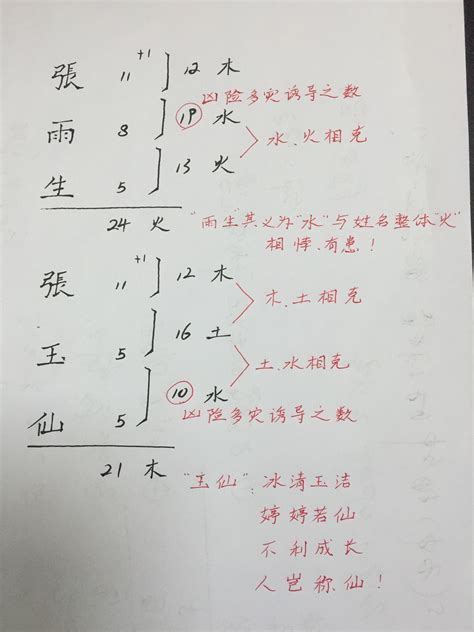 +1
張 11 12 木
凶险多灾诱导之数
雨 8 19 水
水、火相克
生 5 13 火
24 火 "雨生"其义为"水"与姓名整体"火"
相悖、有患！
+1
張 11 12 木
木、土相克
玉 5 16 土
土、水相克
仙 5 10 水
凶险多灾诱导之数
21 木 "玉仙"：冰清玉洁
婷婷若仙
不利成长
人岂称仙！